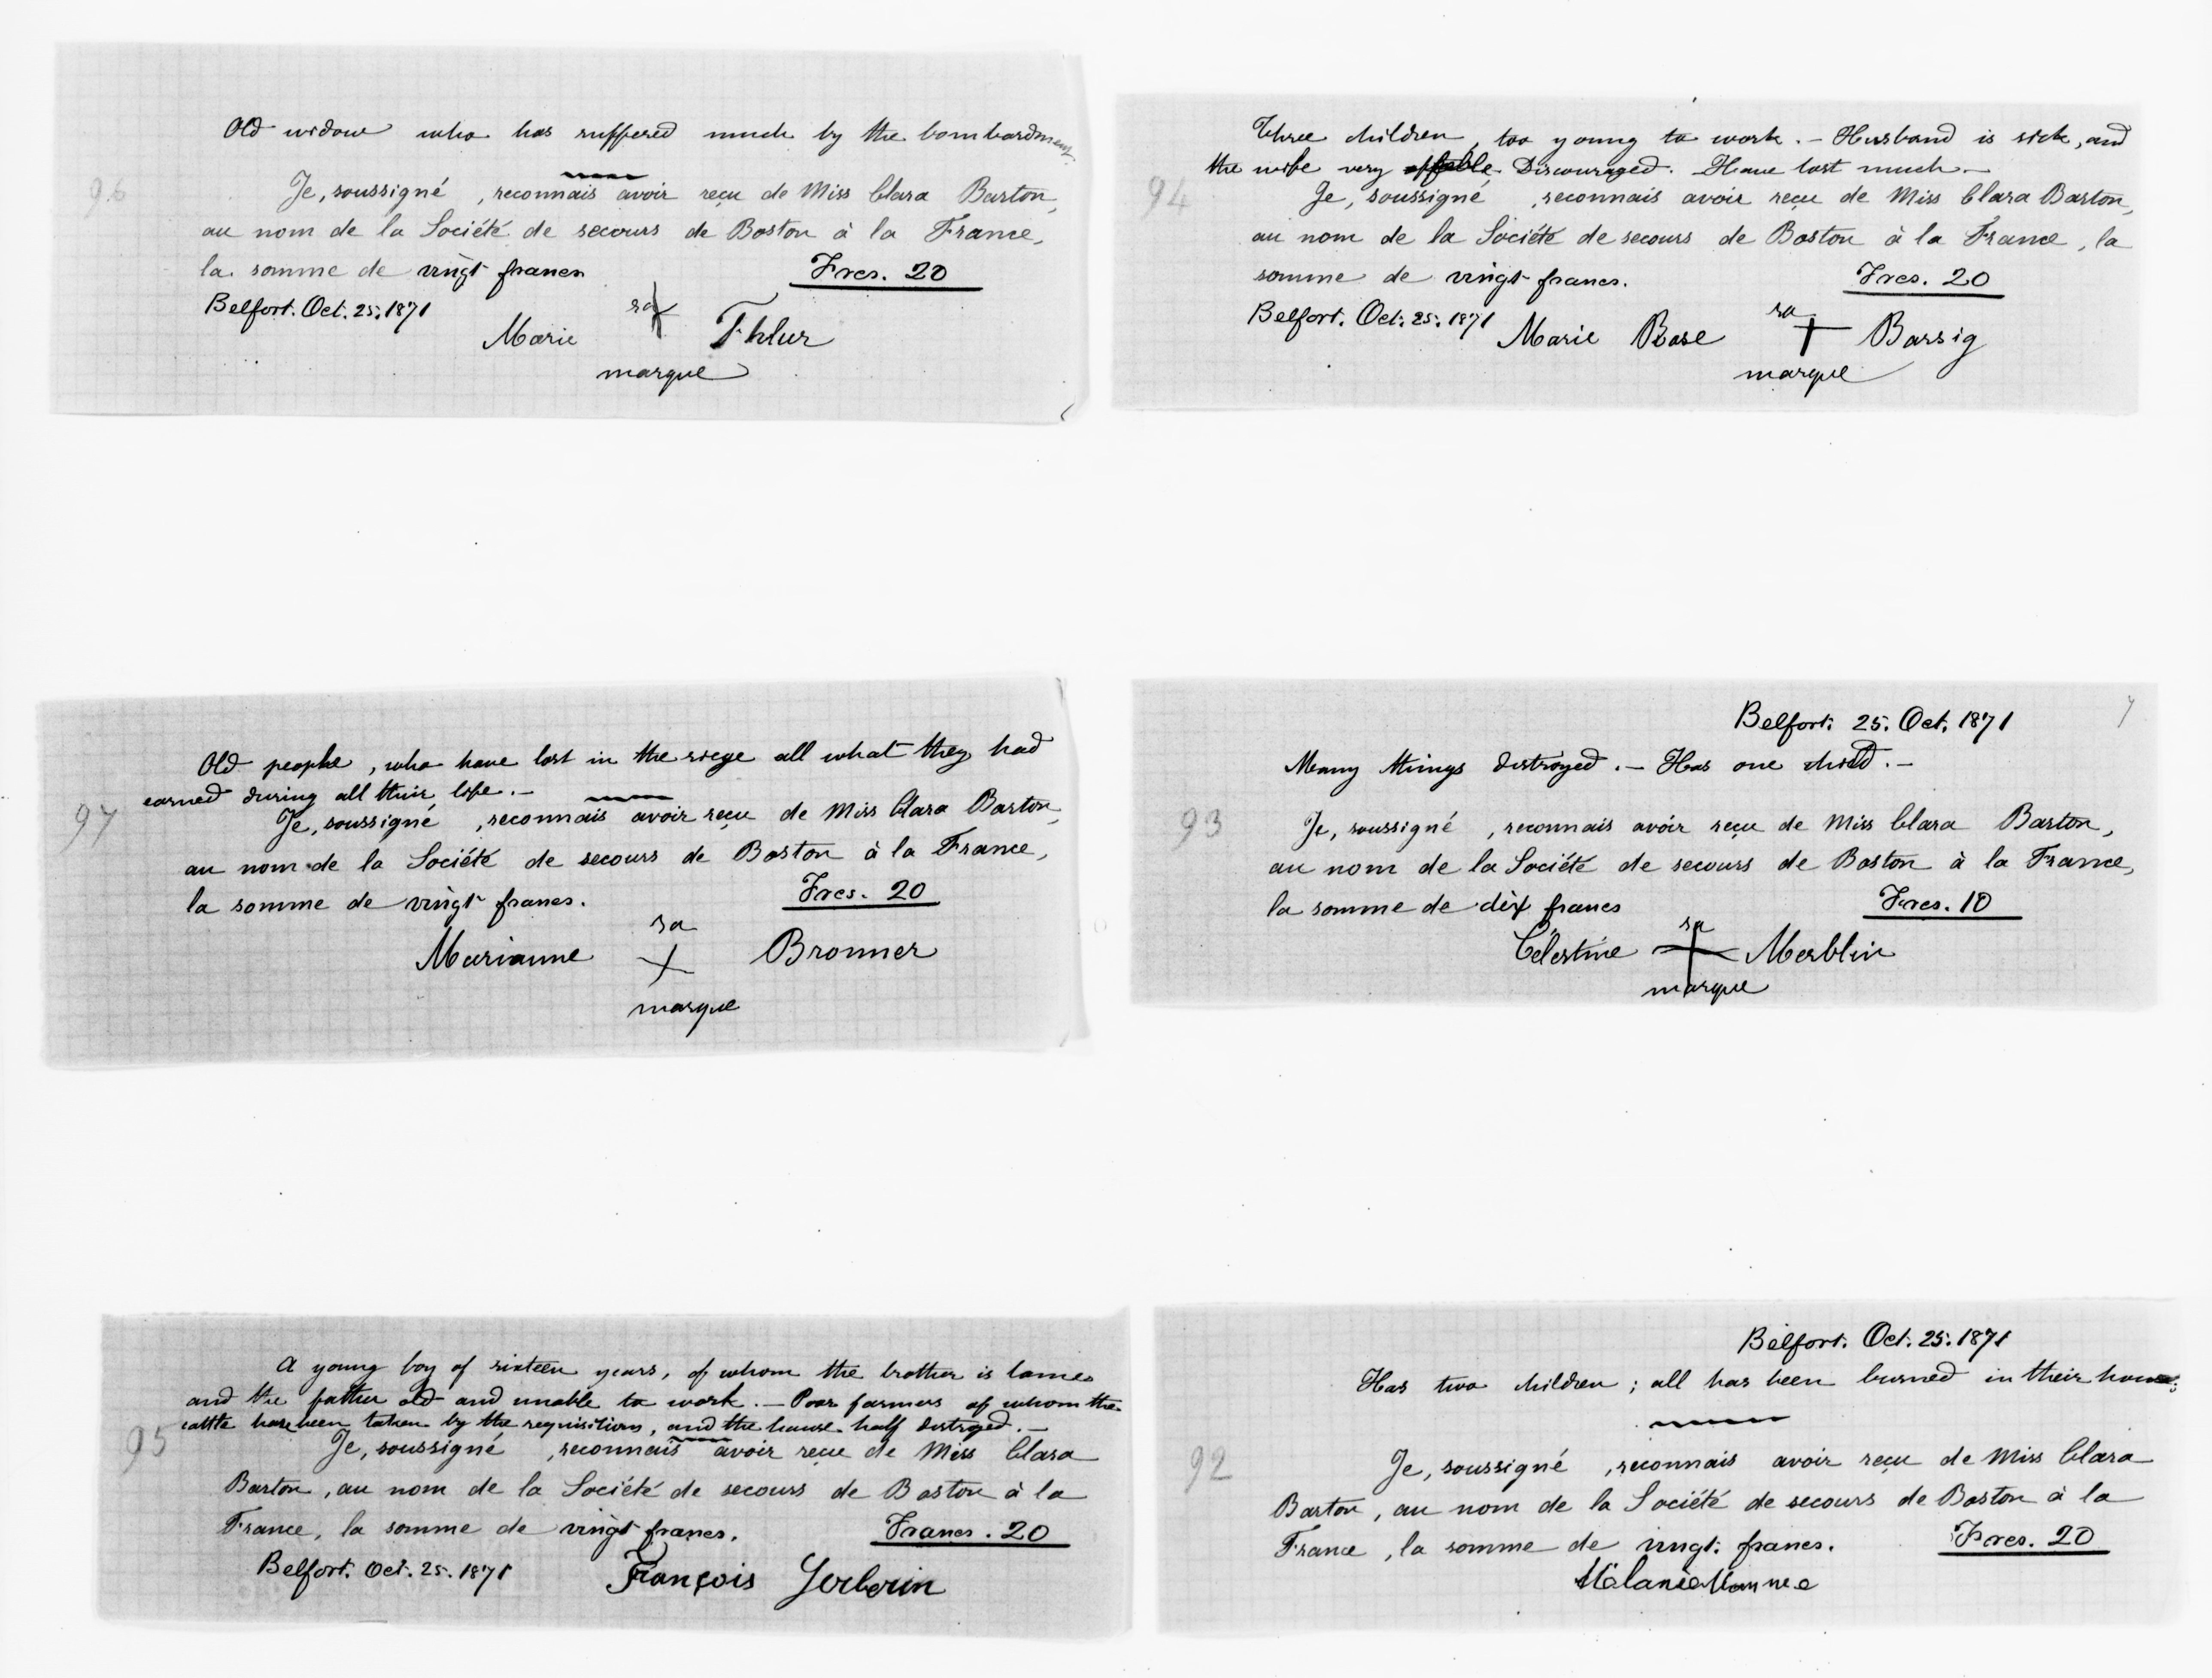 Old widow who has suffered much by the bombardment.
96
Je, soussigné, reconnais avoir reçu de Miss Clara Barton,
au nom de la Société de secours de Boston à la France,
la somme de vingt francs
Frcs. 20
Belfort. Oct. 25. 1871
sa
Marie Thlur
marque
Old people, who have lost in the siege all what they had
earned during all their life. —
97
Je, soussigné, reconnais avoir reçu de Miss Clara Barton,
au nom de la Société de secours de Boston à la France,
la somme de vingt francs.
Frcs. 20
sa
Marianne Bronner
marque
A young boy of sixteen years, of whom the brother is lame
and the father old and unable to work. — Poor farmers of whom the
cattle have been taken by the requisitions, and the house half distroyed. —
95
Je, soussigné, reconnais avoir reçu de Miss Clara
Barton, au nom de la Société de secours de Boston à la
France, la somme de vingt francs.
Francs. 20
Belfort. Oct. 25. 1871
François Gerberin
Three children, too young to work. — Husband is sick, and
the wife very Discouraged. Have lost much. —
94
Je, soussigné, reconnais avoir reçu de Miss Clara Barton,
au nom de la Société de secours de Boston à la France, la
somme de vingt francs.
Frcs. 20
Belfort. Oct. 25. 1871
sa
Marie Rose Bassig
marque
Belfort. 25. Oct. 1871
Many things distroyed. — Has one child. —
93
Je, soussigné, reconnais avoir reçu de Miss Clara Barton,
au nom de la Société de secours de Boston à la France,
la somme de dix francs
Frcs. 10
sa
Célestine Merblin
marque
Belfort. Oct. 25. 1871
Has two children; all has been burned in their house.
92
Je, soussigné, reconnais avoir reçu de Miss Clara
Barton, au nom de la Société de secours de Boston à la
France, la somme de vingt francs.
Frcs. 20
Mélanie